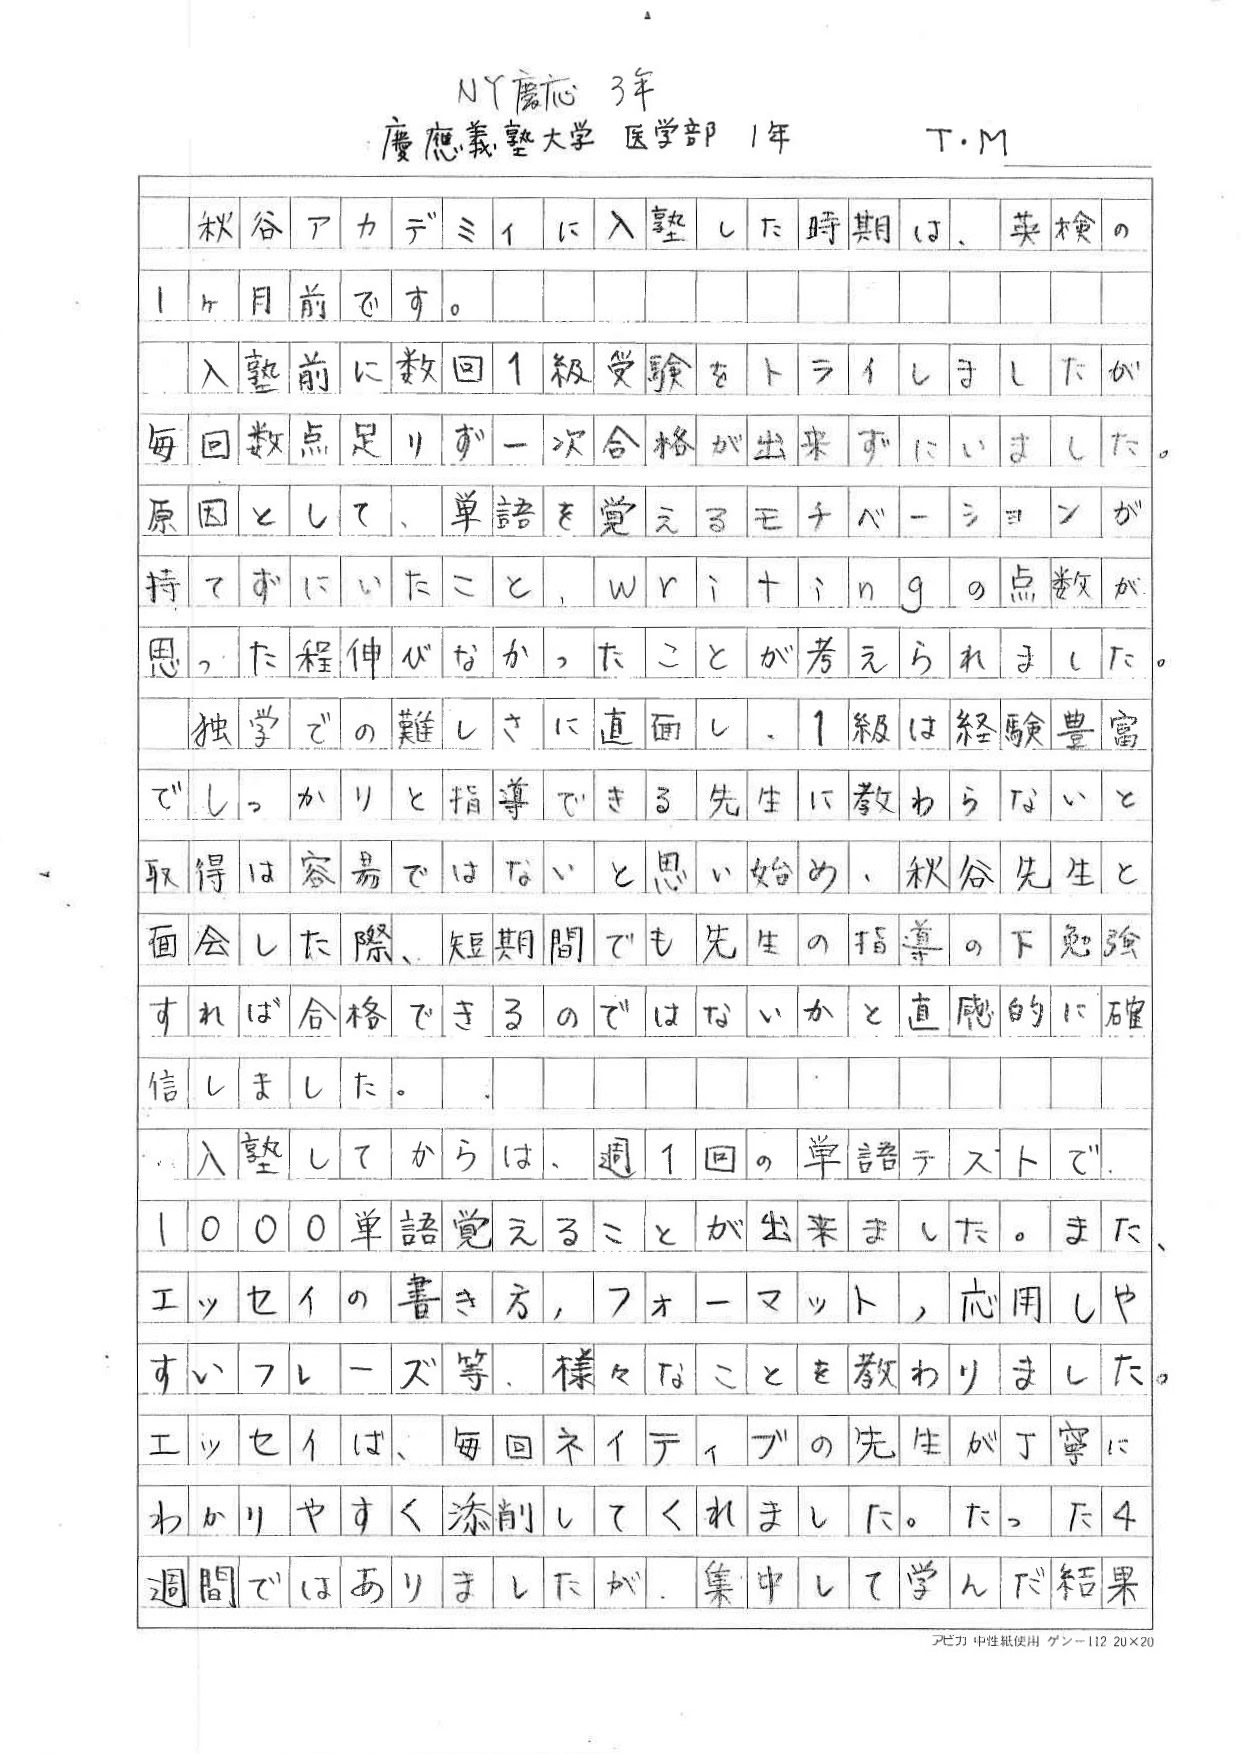 NY慶応 3年
慶應義塾大学 医学部 1年 T・M
秋谷アカデミィに入塾した時期は、英検の
1ヶ月前です。
入塾前に数回1級受験をトライしましたが
毎回数点足りず一次合格が出来ずにいました。
原因として、単語を覚えるモチベーションが
持てずにいたこと、writingの点数が
思った程伸びなかったことが考えられました。
独学での難しさに直面し、1級は経験豊富
でしっかりと指導できる先生に教わらないと
取得は容易ではないと思い始め、秋谷先生と
面会した際、短期間でも先生の指導の下勉強
すれば合格できるのではないかと直感的に確
信しました。
入塾してからは、週1回の単語テストで
1000単語覚えることが出来ました。また、
エッセイの書き方,フォーマット,応用しや
すいフレーズ等、様々なことを教わりました。
エッセイは、毎回ネイティブの先生が丁寧に
わかりやすく添削してくれました。たった4
週間ではありましたが、集中して学んだ結果
アピカ 中性紙使用 ゲンー112 20×20